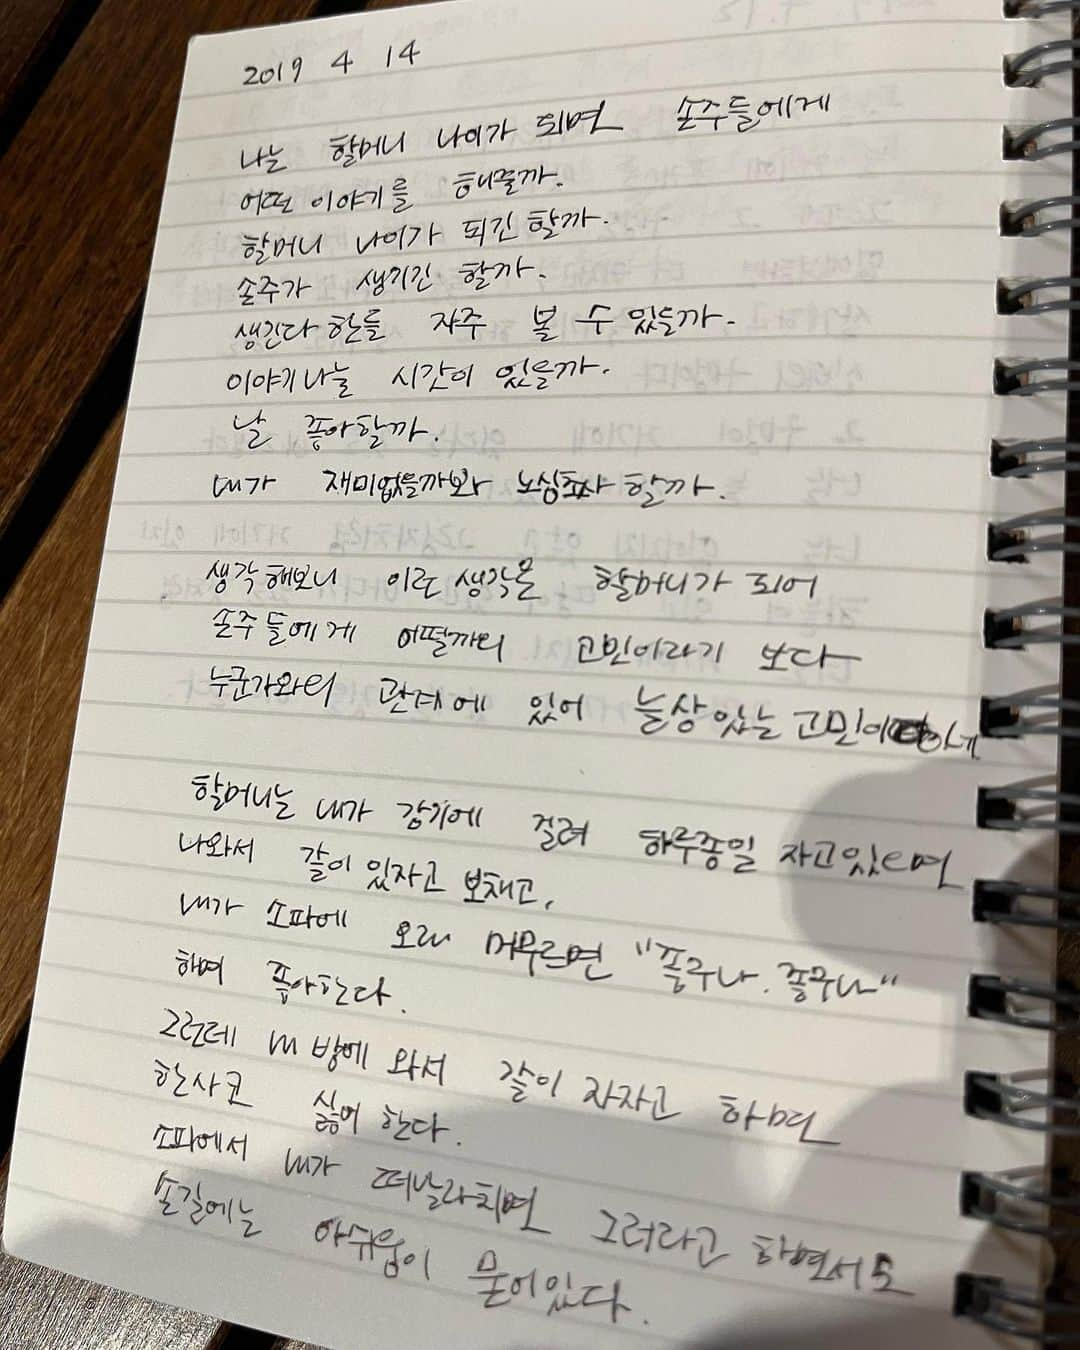 2019 4 14
나는 할머니 나이가 되면 손주들에게
어떤 이야기를 해줄까.
할머니 나이가 되긴 할까.
손주가 생기긴 할까.
생긴다 한들 자주 볼 수 있을까.
이야기 나눌 시간이 있을까.
날 좋아할까.
내가 재미없을까봐 노심초사 할까.
생각해보니 이런 생각은 할머니가 되어
손주들에게 어떨까의 고민이라기 보다
누군가와의 관계에 있어 늘상 있는 고민이
할머니는 내가 감기에 걸려 하루종일 자고있으면
나와서 같이 있자고 보채고,
내가 소파에 오래 머무르면 "좋구나. 좋구나"
하며 좋아한다.
그런데 내 방에 와서 같이 자자고 하면
한사코 싫어 한다.
소파에서 내가 떠날라치면 그러라고 하면서도
손길에는 아쉬움이 묻어있다.